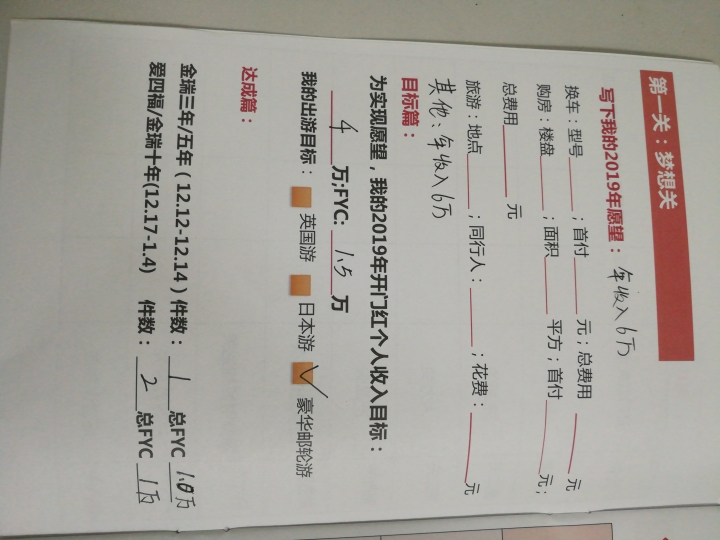 第一关：梦想关
写下我的2019年愿望： 年收入6万
换车：型号____；首付____元；总费用____元
购房：楼盘____；面积____平方；首付____元；
总费用____元
旅游：地点____；同行人：____；花费：____元
其他、年收入6万
目标篇：
为实现愿望，我的2019年开门红个人收入目标：
4万;FYC: 1.5万
我的出游目标： 英国游 日本游 ✓ 豪华邮轮游
达成篇：
金瑞三年/五年（12.12-12.14）件数：1 总FYC 1.0万
爱四福/金瑞十年(12.17-1.4) 件数：2 总FYC 1万